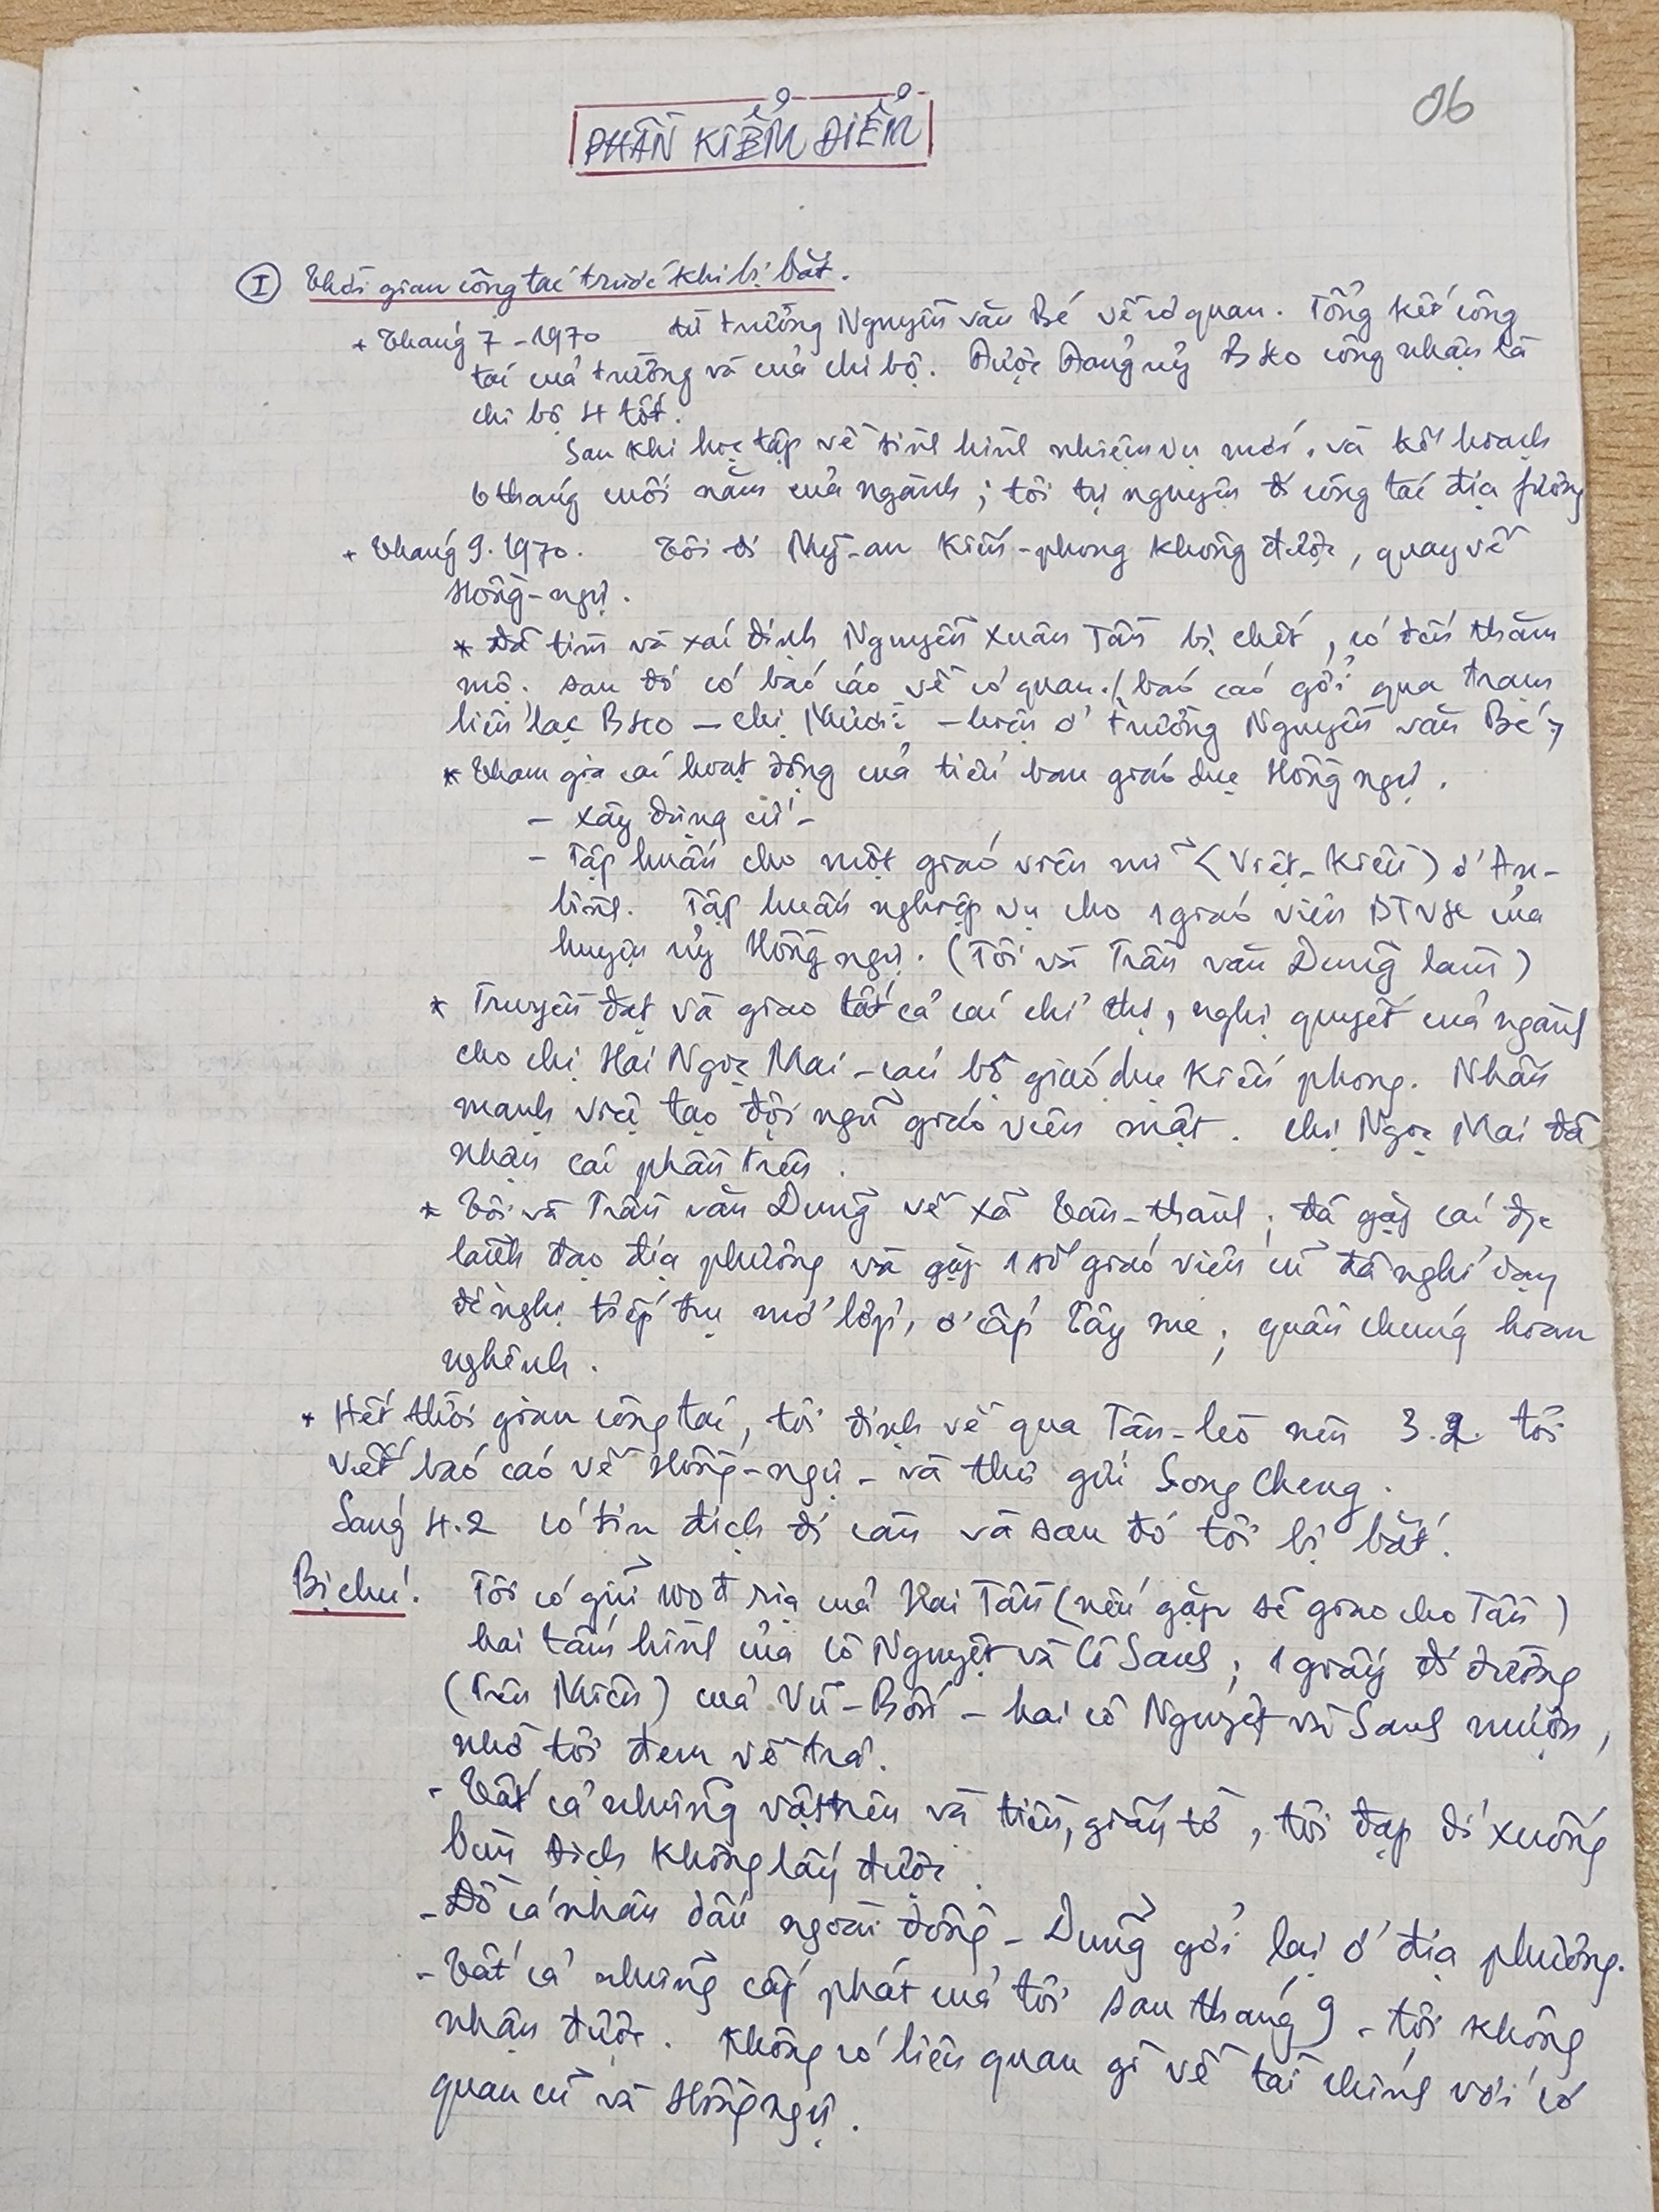 06
PHẦN KIỂM ĐIỂM
I Thời gian công tác trước khi bị bắt.
+ Tháng 7-1970 từ trường Nguyễn văn Bé về cơ quan. Tổng kết công
tác của trường và của chi bộ. Được Đảng ủy B40 công nhận là
chi bộ 4 tốt.
Sau khi học tập về tình hình nhiệm vụ mới, và kế hoạch
6 tháng cuối năm của ngành; tôi tự nguyện đi công tác địa fương
+ Tháng 9.1970. Tôi đi Mỹ-an Kiến-phong không được, quay về
Hồng-ngự.
* Đã tìm và xác định Nguyễn Xuân Tân bị chết, có đến thăm
mộ. sau đó có báo cáo về cơ quan. (báo cáo gởi qua trạm
liên lạc B40 – chị Mười – hiện ở trường Nguyễn văn Bé)
* Tham gia các hoạt động của tiểu ban giáo dục Hồng ngự.
- xây dựng cứ -
- Tập huấn cho một giáo viên mới (Việt-Kiều) ở An-
bình. Tập huấn nghiệp vụ cho 1 giáo viên BTVH của
huyện ủy Hồng ngự. (Tôi và Trần văn Dũng làm)
* Truyền đạt và giao tất cả các chỉ thị, nghị quyết của ngành
cho chị Hai Ngọc Mai – cán bộ giáo dục Kiến phong. Nhấn
mạnh việc tạo đội ngũ giáo viên mật. Chị Ngọc Mai đã
nhận các phần trên.
* Tôi và Trần văn Dũng về xã Tân-thành; đã gặp các đ/c
lãnh đạo địa phương và gặp 1 số giáo viên cũ đã nghỉ dạy
đề nghị tiếp tục mở lớp, ở ấp Tây me; quần chúng hoan
nghênh.
+ Hết thời gian công tác, tôi định về qua Tân-lèo nên 3.2. tôi
viết báo cáo về Hồng-ngự - và thư gửi Song Cheng.
Sáng 4.2 có tin địch đi càn và sau đó tôi bị bắt.
Bị chú. Tôi có giữ 100đ ria của Hai Tân (nếu gặp sẽ giao cho Tân)
hai tấm hình của cô Nguyệt và Cô Sanh; 1 giấy đi đường
(Trên Miên) của Vũ-Bốn – hai cô Nguyệt và Sanh mượn,
nhờ tôi đem về trả.
- Tất cả những vật trên và tiền, giấy tờ, tôi đạp đi xuống
bùn địch không lấy được.
- Đồ cá nhân dấu ngoài đồng – Dũng gởi lại ở địa phương.
- Tất cả những cấp phát của tôi sau tháng 9 – tôi không
nhận được. Không có liên quan gì về tài chính với cơ
quan cũ và Hồng ngự.